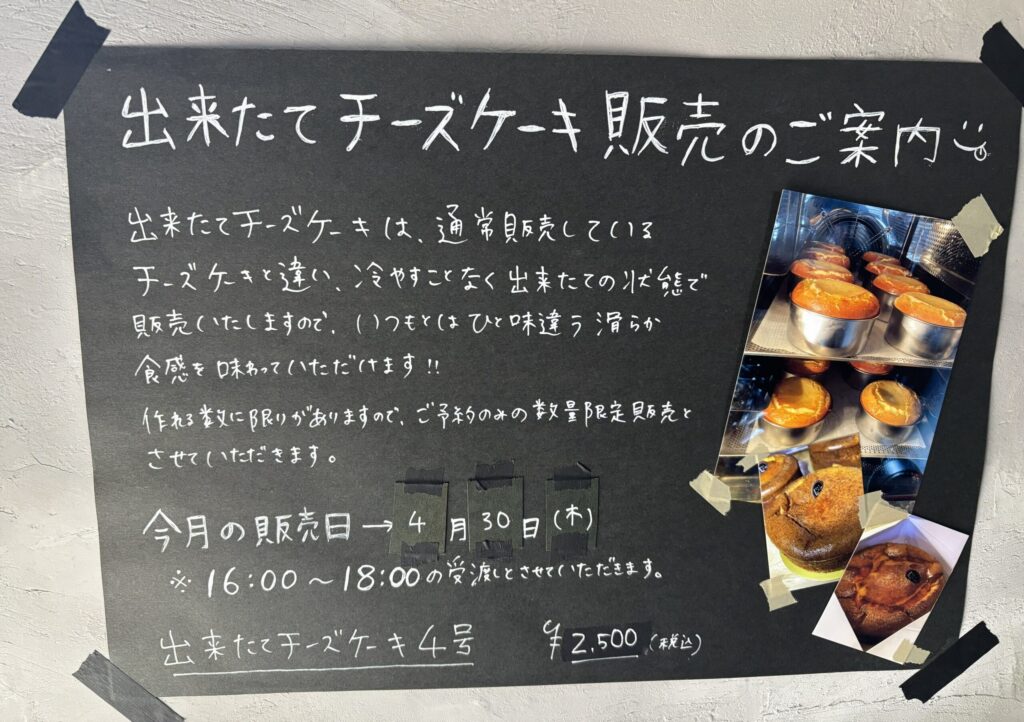 出来たてチーズケーキ販売のご案内
出来たてチーズケーキは、通常販売している
チーズケーキと違い、冷やすことなく出来たての状態で
販売いたしますので、いつもとはひと味違う滑らか
食感を味わっていただけます!!
作れる数に限りがありますので、ご予約のみの数量限定販売と
させていただきます。
今月の販売日→4月30日(木)
※16:00~18:00の受渡しとさせていただきます。
出来たてチーズケーキ4号 ¥2,500(税込)